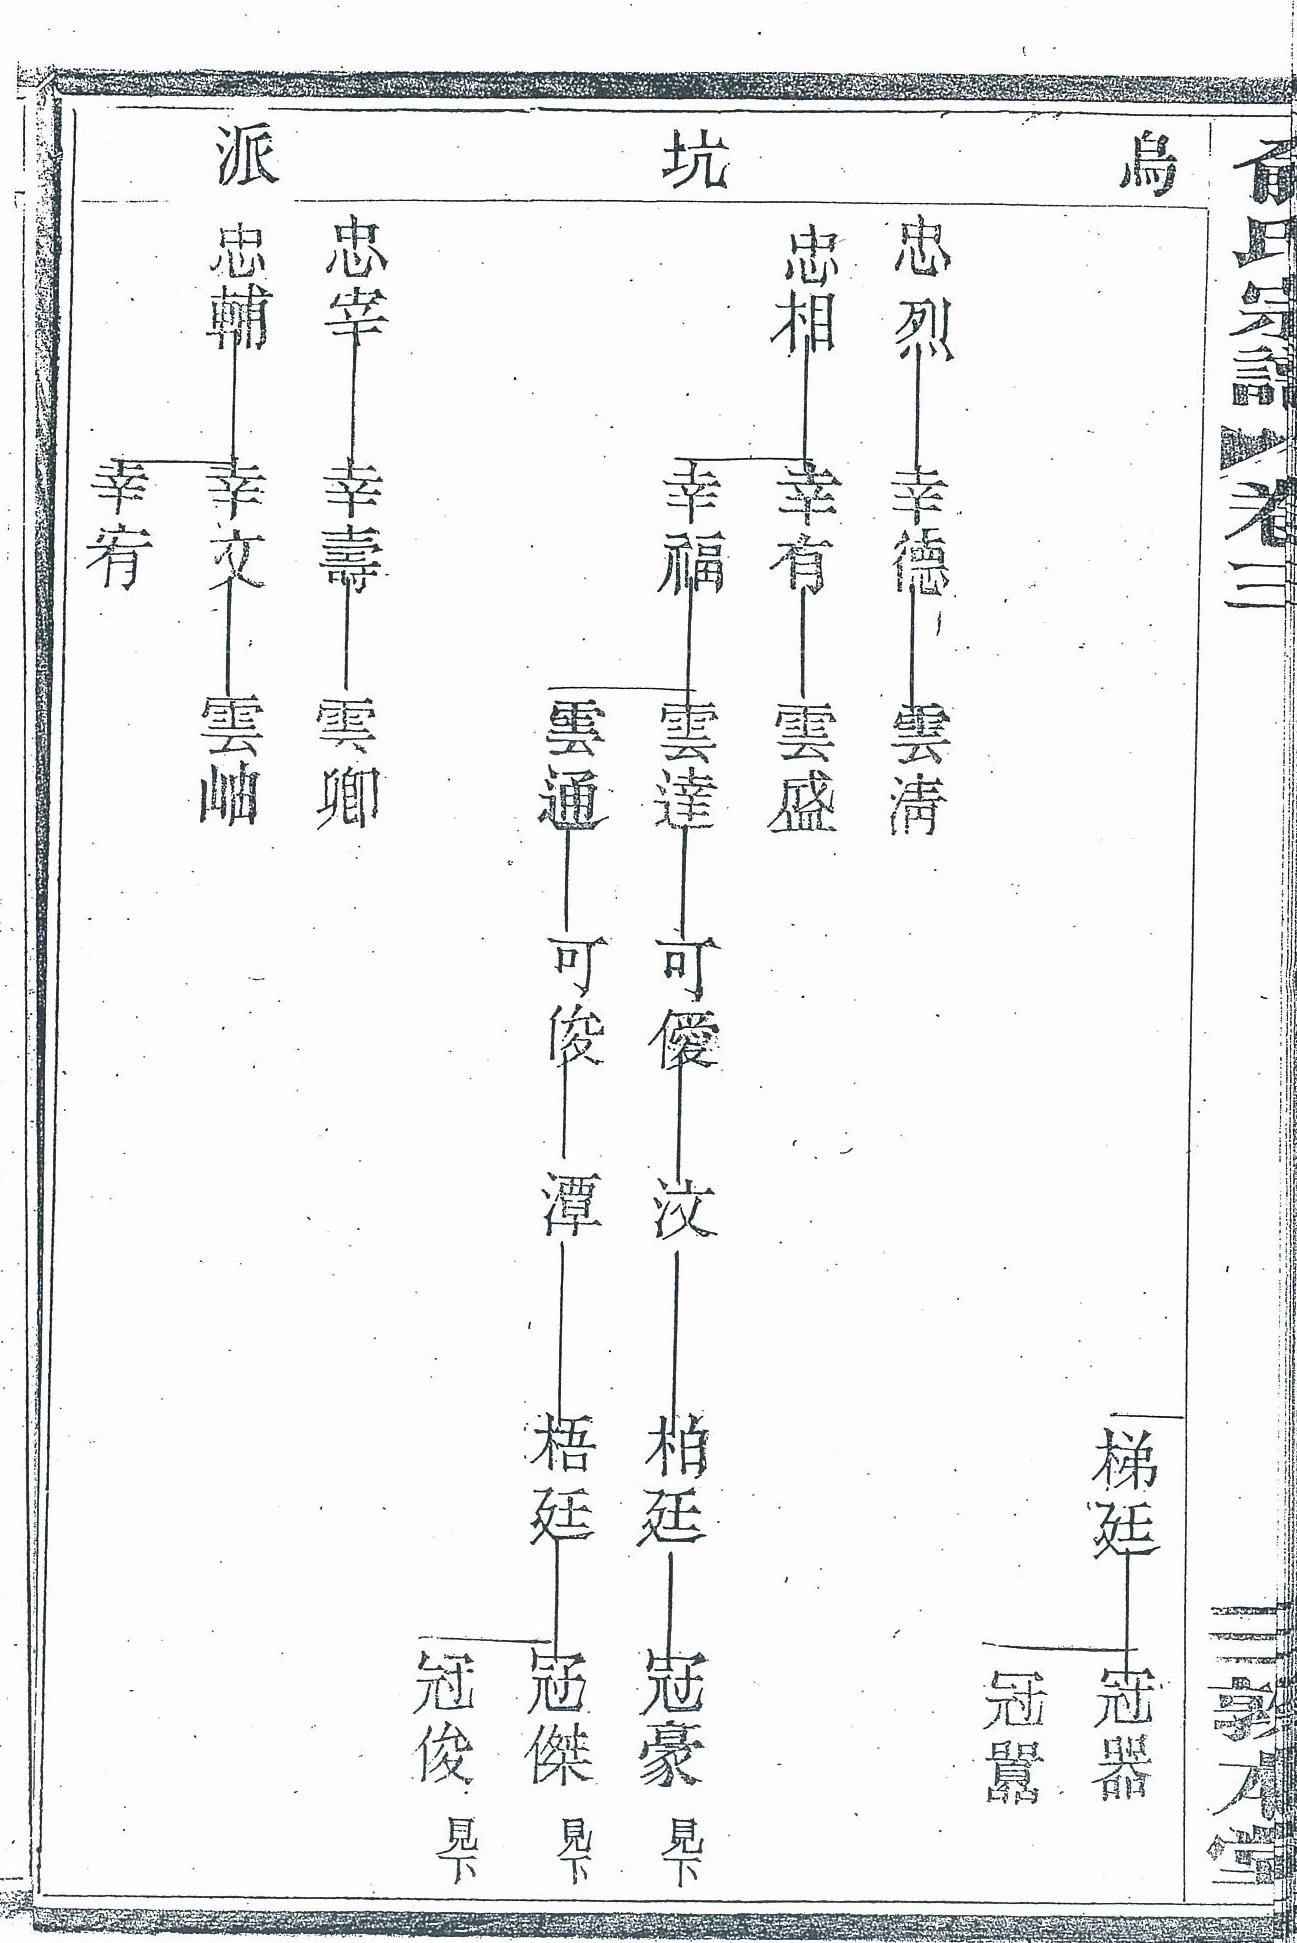 俞氏宗譜 卷三
三 敦本堂
烏坑派
梯廷
冠器
冠囂
忠烈
幸德
雲淸
忠相
幸有
雲盛
幸福
雲達
可優
汶
柏廷
冠豪 見下
雲通
可俊
潭
梧廷
冠傑 見下
冠俊 見下
忠宰
幸壽
雲卿
忠輔
幸文
雲岫
幸宥